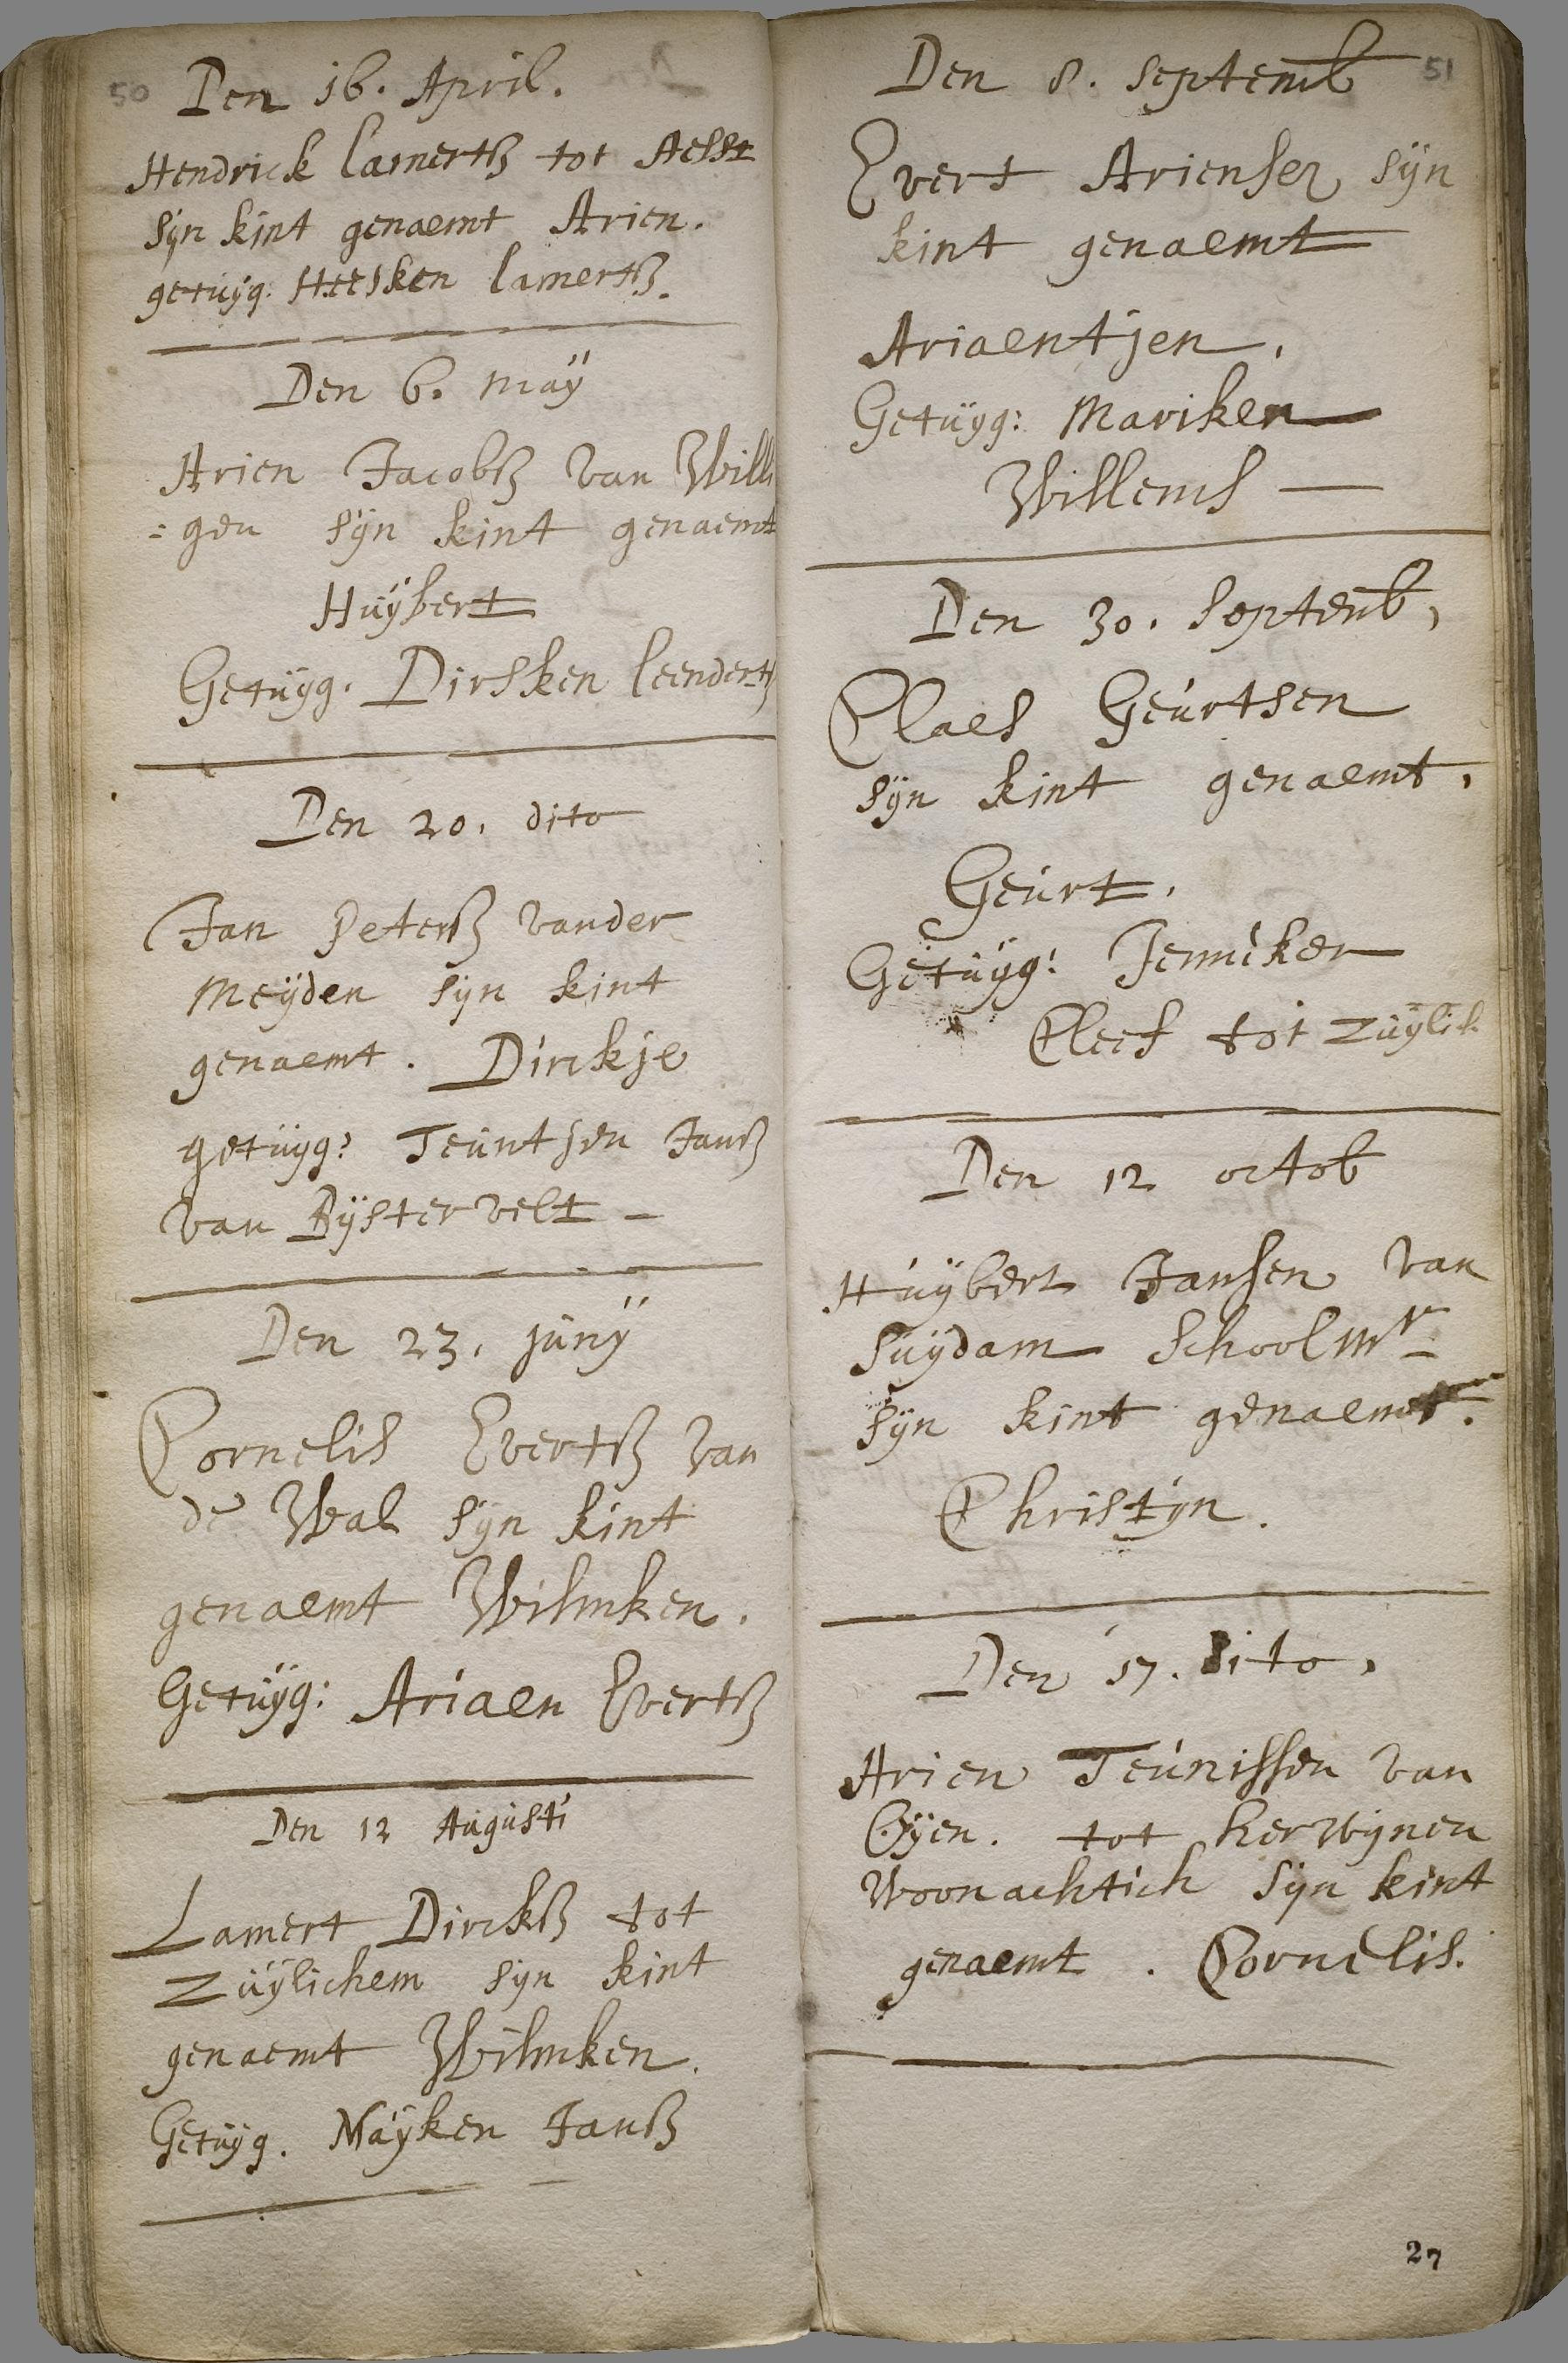 50
Den 16. April.
Hendrick lamertß tot Aelst
Sÿn kint genaemt Arien.
getuÿg. Heesken lamertß.
Den 6. maÿ
Arien Jacobß van Willi
=gen sÿn kint genaemt
Huÿbert
Getuÿg. Dirsken leendertß
Den 20. dito
Jan Peterß vander
Meÿden sÿn kint
genaemt. Dirckje
getuÿg: Teuntjen Janß
van Bÿstervelt -
Den 23. junÿ
Cornelis Evertß van
de Wal sÿn kint
genaemt Wilmken.
Getuÿg: Ariaen Evertß
Den 12 Augusti
Lamert Dirckß tot
Zuÿlichem sÿn kint
genaemt Wilmken.
Getuÿg. Maÿken Janß
51
Den 8. septemb
Evert Ariensen sÿn
kint genaemt
Ariaentjen.
Getuÿg: Mariken
Willems —
Den 30. septemb,
Claes Geurtsen
sÿn kint genaemt,
Geurt.
Getuÿg: Jenneken
Cleef tot Zuÿlich
Den 12 octob
Huÿbert Jansen van
Suÿdam Schoolmr
sÿn kint genaemt.
Christÿn.
Den 17. dito,
Arien Teunissen van
Oÿen. tot herwÿnen
Woonachtich sÿn kint
genaemt. Cornelis.
27